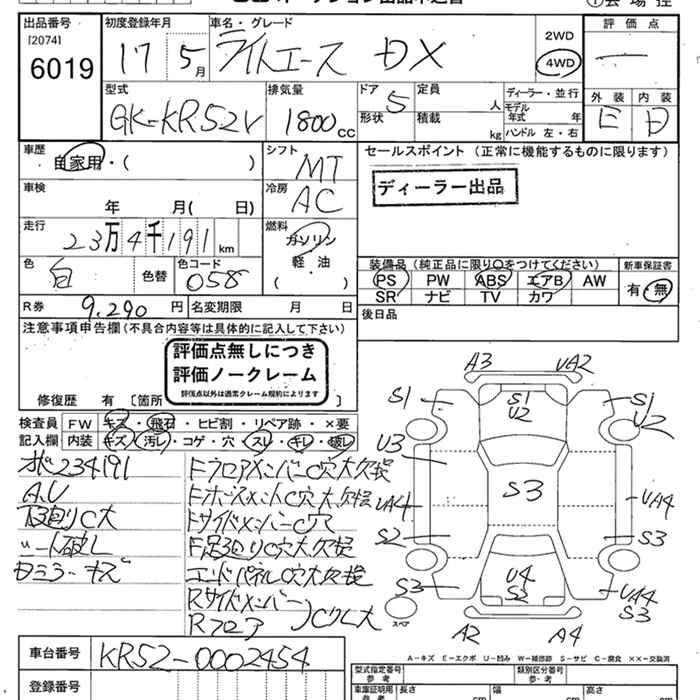 出品番号
[2074]
6019
初度登録年月
17 5月
車名・グレード
ライトエース DX
2WD
4WD
評価点
—
外装 内装
E D
型式
GK-KR52V
排気量
1800cc
ドア 5
形状
定員 人
積載 kg
ディーラー・並行
モデル年式 年
ハンドル 左・右
車歴
自家用・( )
シフト
MT
セールスポイント (正常に機能するものに限ります)
ディーラー出品
車検
年 月( 日)
冷房
AC
走行
23万4千191km
燃料
ガソリン
軽・油
( )
色
白
色替
色コード
058
装備品 (純正品に限り○をつけてください)
新車保証書
PS PW ABS エアB AW
SR ナビ TV カワ
有・無
R券 9,290円
名変期限 月 日
後日品
注意事項申告欄(不具合内容等は具体的に記入して下さい)
評価点無しにつき
評価ノークレーム
評価点以外は通常クレーム規約によります
修復歴 有 [箇所 ]
検査員
記入欄
FW キズ・飛石・ヒビ割・リペア跡・×要
内装 キズ・汚レ・コゲ・穴・スレ・キレ・破レ
234191
シート破レ
Dミラーキズ
FフロアメンバーC穴大欠損
FサイドメンバーC穴
F足回りC穴大欠損
エンドパネルC穴大欠損
Rサイドメンバー
Rフロア
A3 UA2
S1 S1 S1
U2 U2
U3
S3
UA4 UA4
S2 S3
U4
S2
S3 UA4
S3
スペア
A2 A4
A-キズ E-エクボ U-凹み W-補修跡 S-サビ C-腐食 ××-交換済
車台番号
KR52-0002454
登録番号
型式指定番号
参考
類別区分番号
参・考
車庫証明用
長さ cm
幅 cm
高さ cm